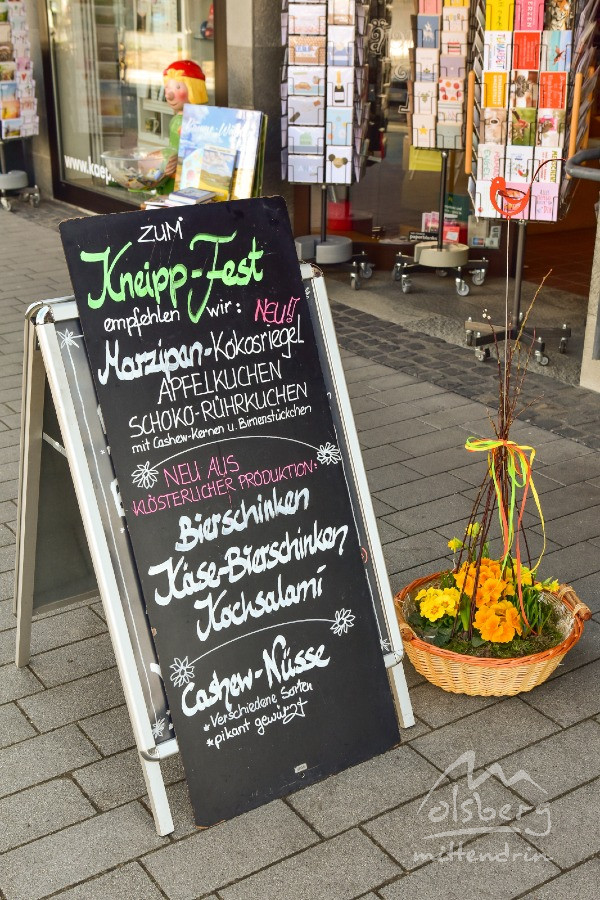 www.
ZUM
Kneipp-Fest
empfehlen wir:
NEU!!
Marzipan-Kokosriegel
APFELKUCHEN
SCHOKO-RÜHRKUCHEN
mit Cashew-Kernen u. Birnenstückchen
NEU AUS
KLÖSTERLICHER PRODUKTION:
Bierschinken
Käse-Bierschinken
Kochsalami
Cashew-Nüsse
*Verschiedene Sorten
*pikant gewürzt
olsberg
mittendrin